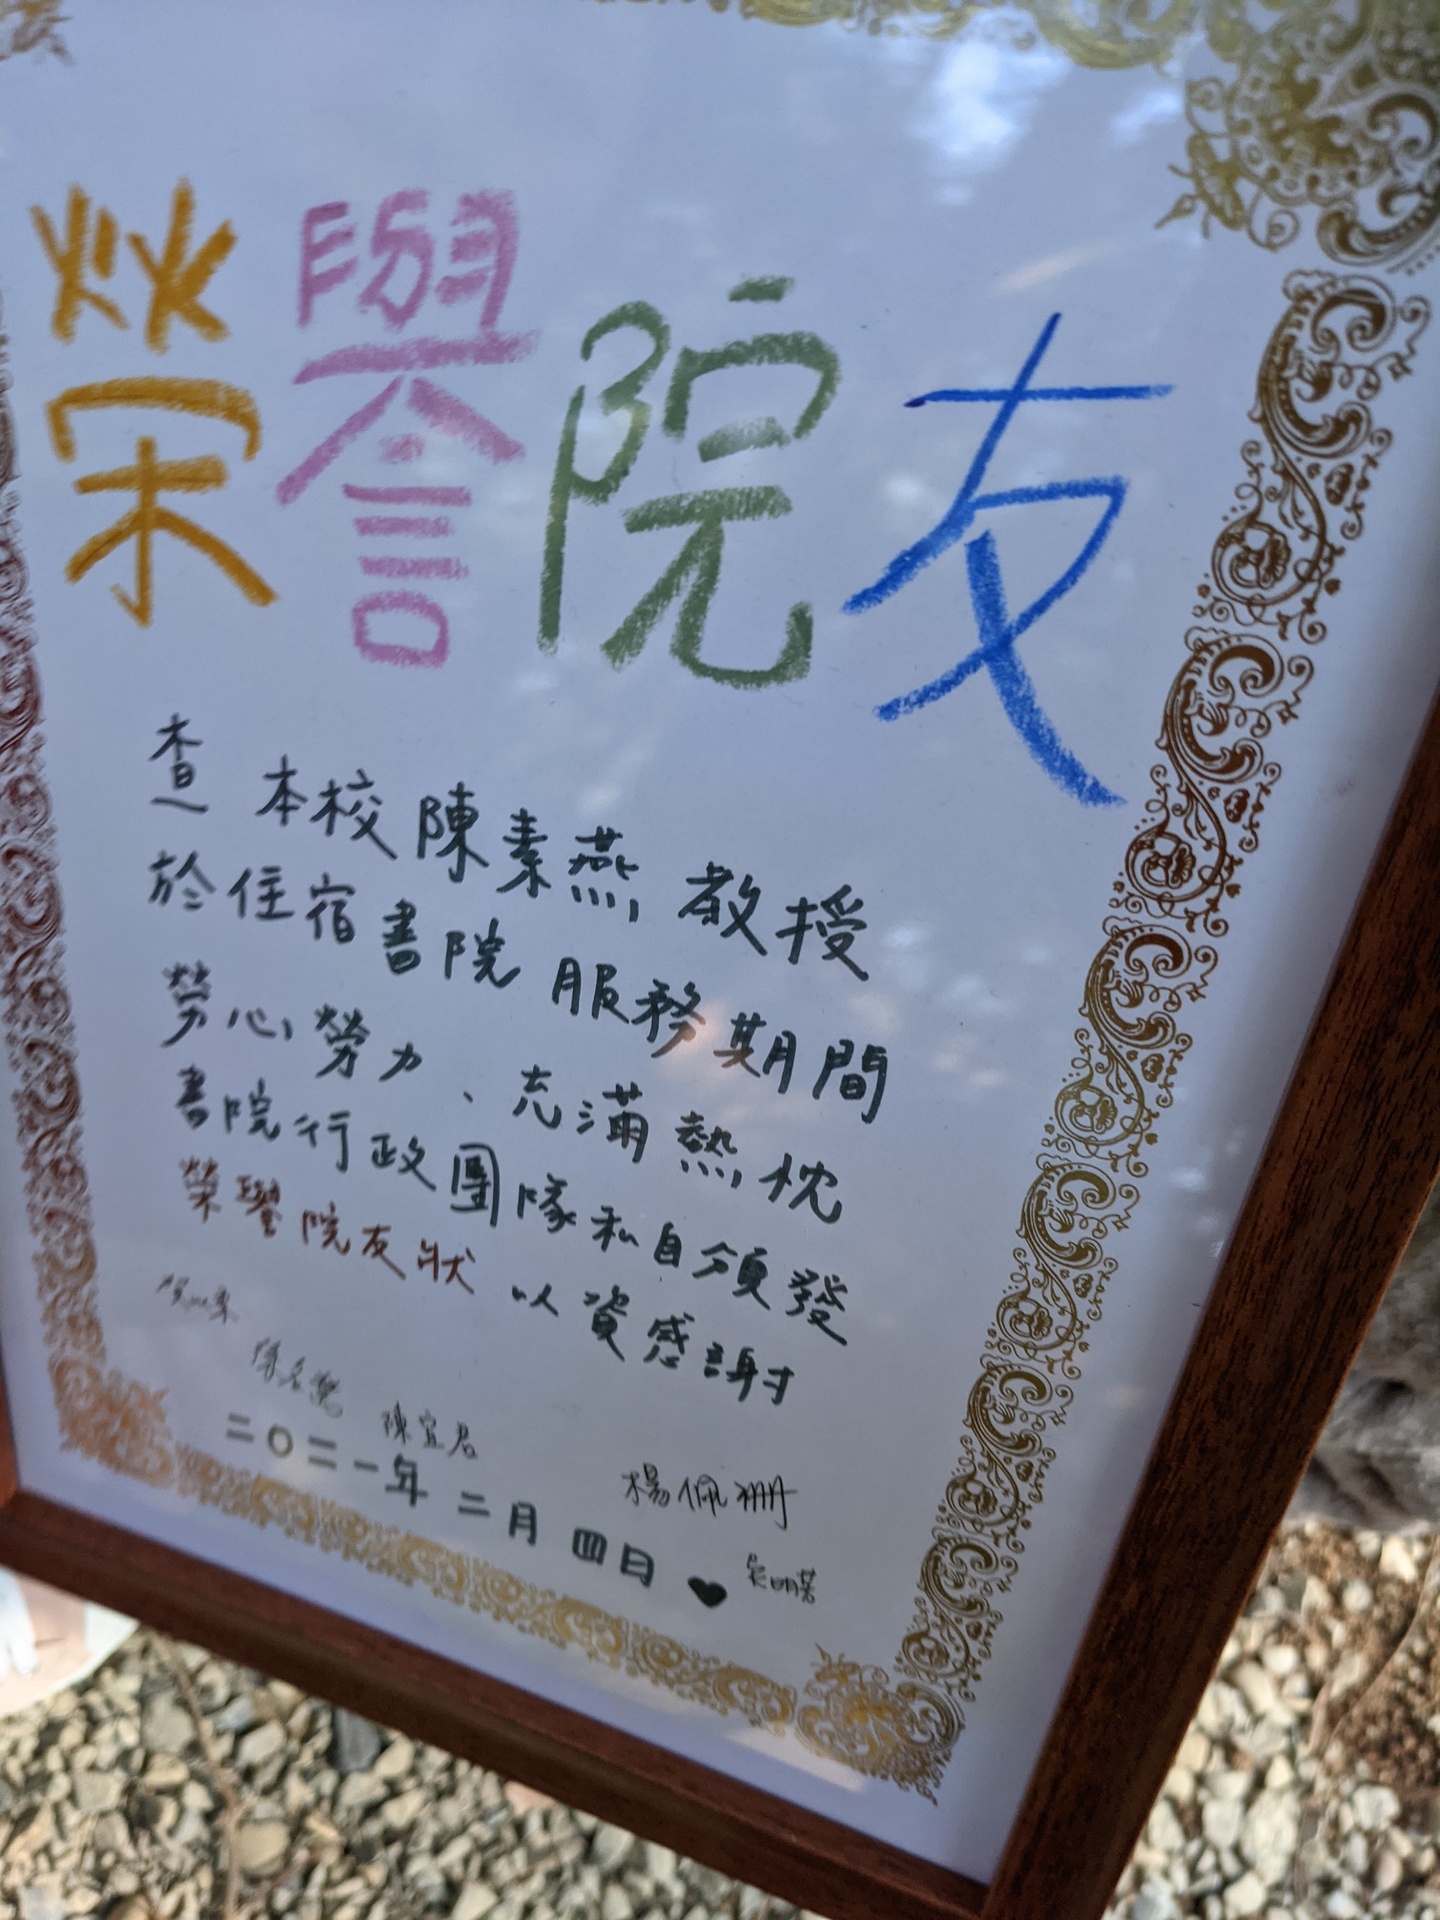 榮譽院友
查 本校 陳素燕 教授
於住宿書院 服務期間
勞心勞力、充滿熱忱
書院行政團隊私自頒發
榮譽院友狀 以資感謝
陳宜君
楊佩珊
二〇二一年 二月 四日